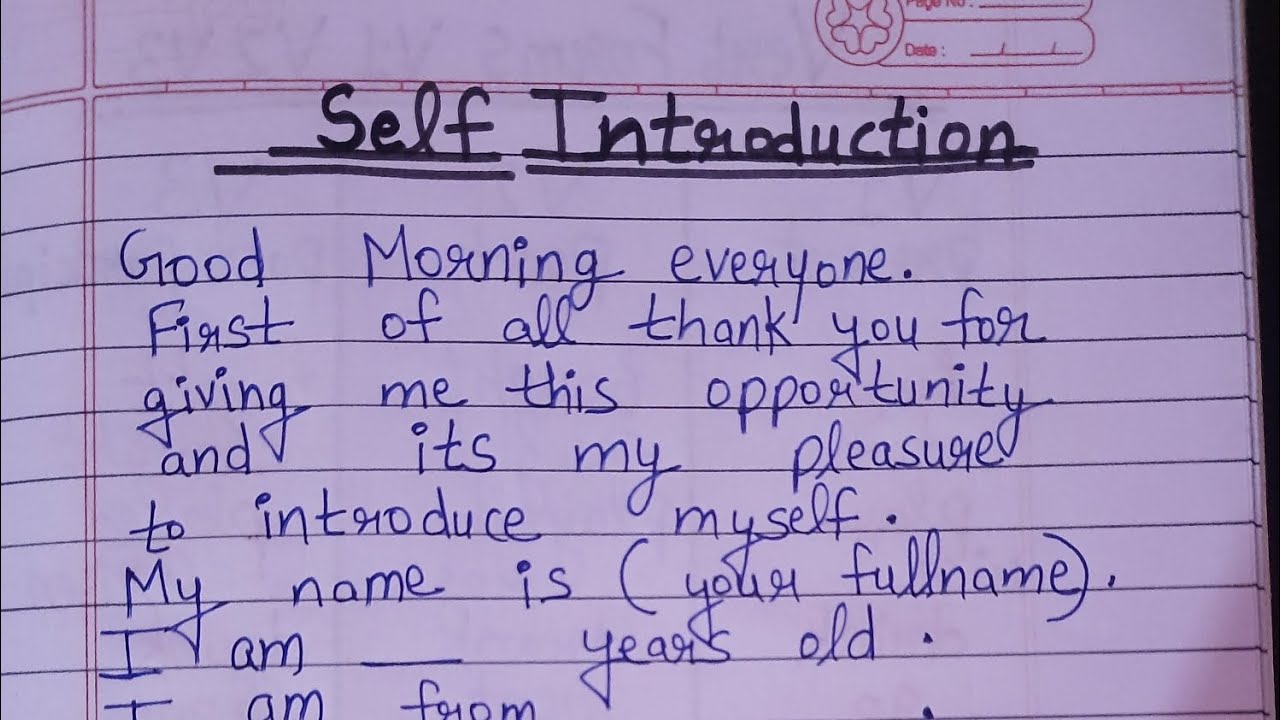 Page No :
Date :
Self Introduction
Good Morning everyone.
First of all thank you for
giving me this opportunity
and its my pleasure
to introduce myself.
My name is (your fullname).
I am ___ years old .
I am from .